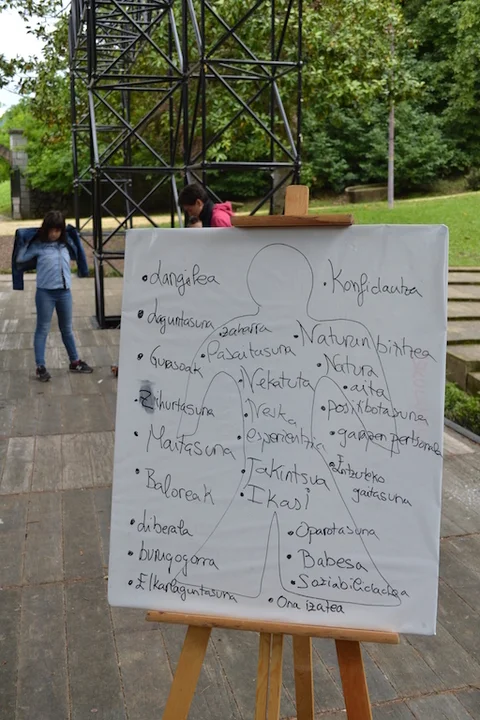 • Langilea
• Konfidantza
• laguntasuna
• zaharra
• Naturan bizitzea
• Gurasoak
• Pasaitasuna
• Natura
• Nekatuta
• aita
• Zihurtasuna
• Neska
• positibotasuna
• Maitasuna
• esperientzia
• garapen pertsonala
• Jakintsua
• Entzuteko gaitasuna
• Baloreak
• Ikasi
• diberala
• Oparotasuna
• burugogorra
• Babesa
• Elkarlaguntasuna
• Soziabilidadea
• Ona izatea